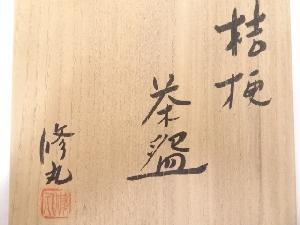 桔梗
茶盌
修丸